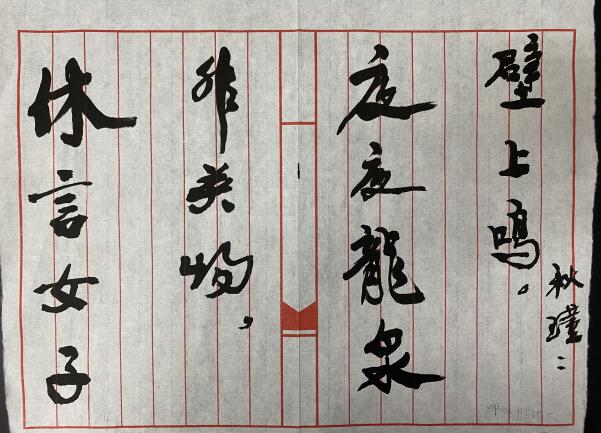 休言女子
非英物，
夜夜龍泉
壁上鳴。
秋瑾